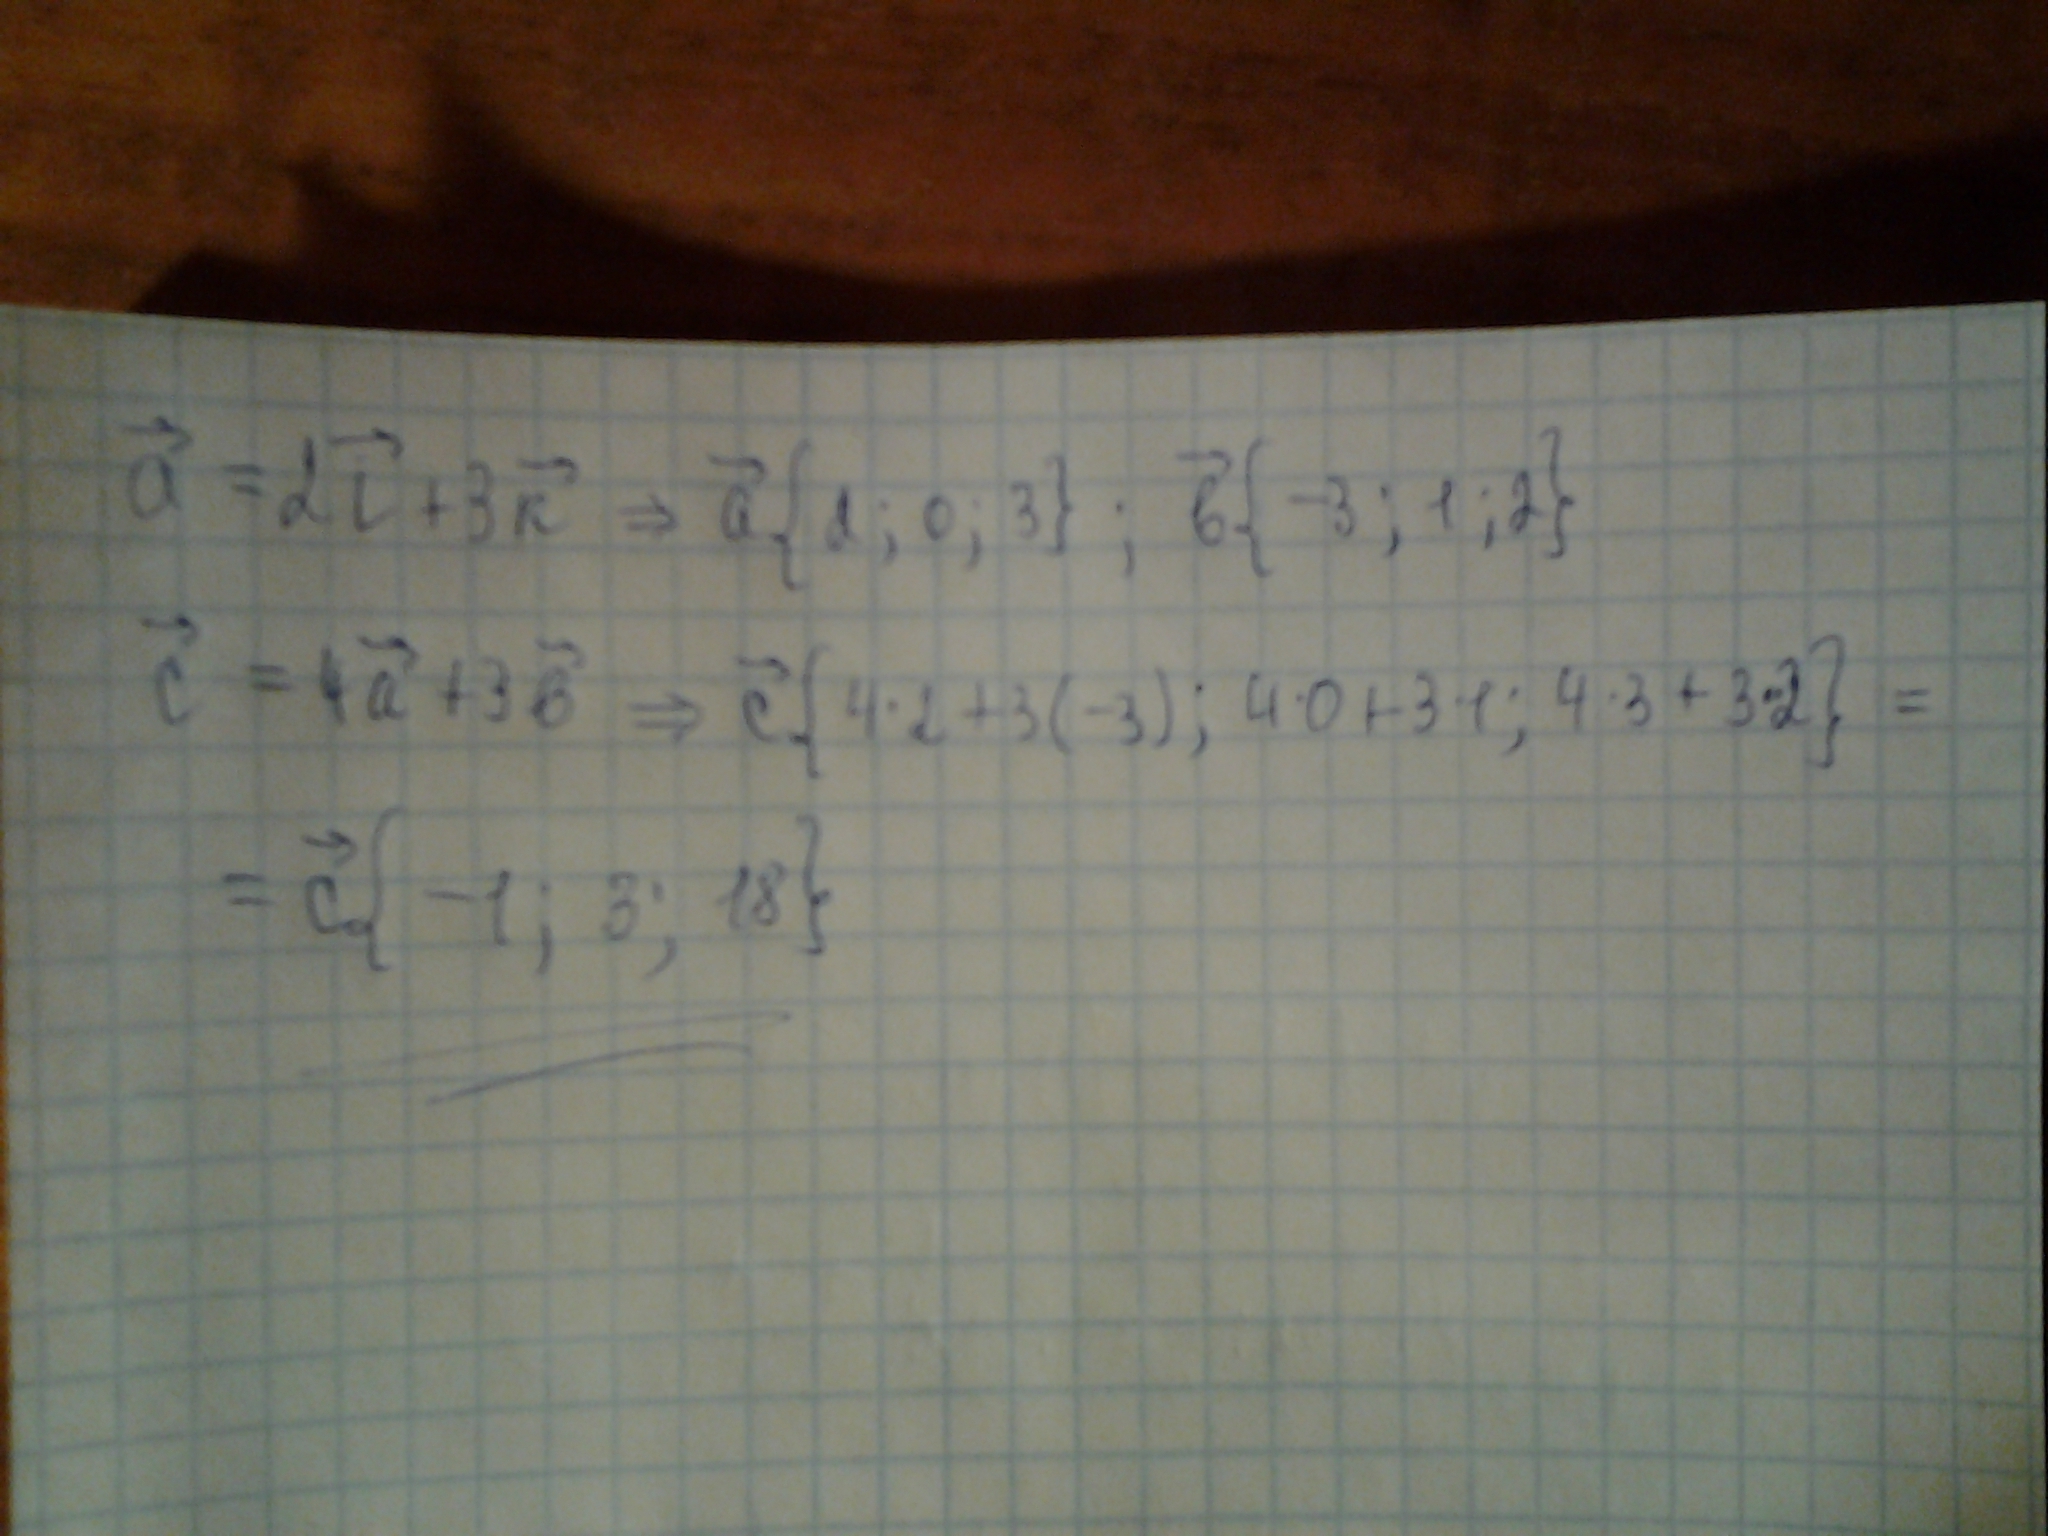 a⃗ = 2i⃗ + 3k⃗ ⇒ a⃗{2; 0; 3}; b⃗{-3; 1; 2}
c⃗ = 4a⃗ + 3b⃗ ⇒ c⃗{4·2+3(-3); 4·0+3·1; 4·3+3·2} =
= c⃗{-1; 3; 18}